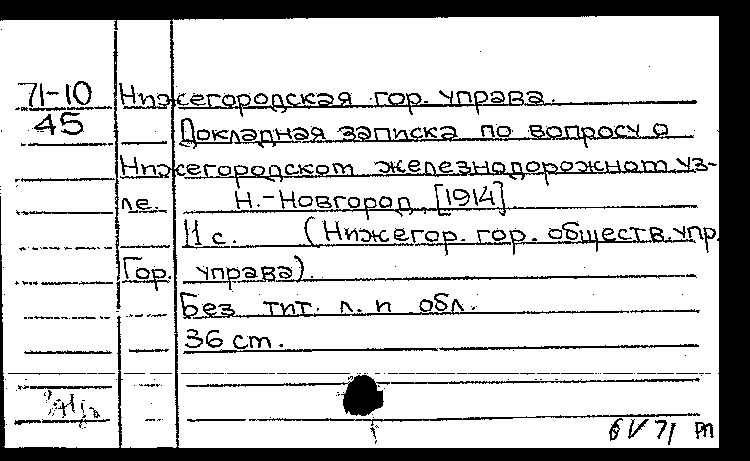 71-10 Нижегородская гор. управа.
45 Докладная записка по вопросу о
Нижегородском железнодорожном уз-
ле. Н.-Новгород, [1914]
11 с. (Нижегор. гор. обществ. упр.
Гор. управа).
Без тит. л. и обл.
36 ст.
6 V 71 РП